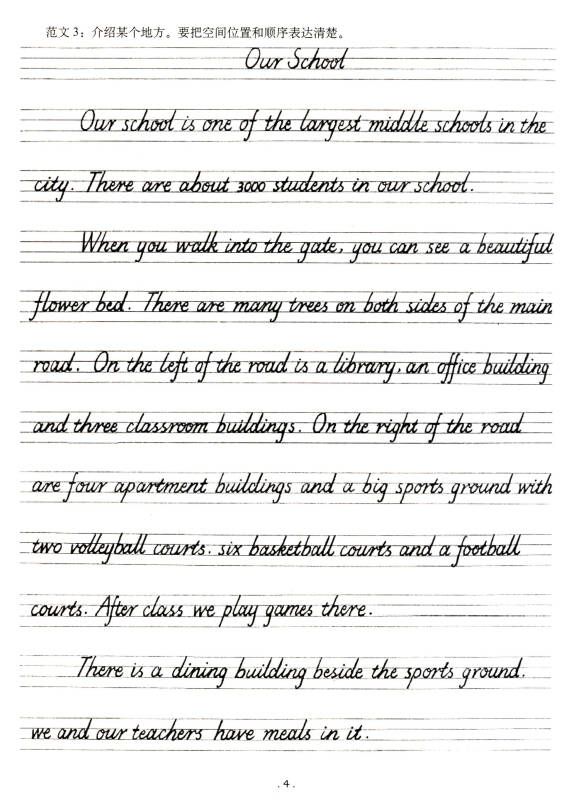 范文3：介绍某个地方。要把空间位置和顺序表达清楚。
Our School
Our school is one of the largest middle schools in the
city. There are about 3000 students in our school.
When you walk into the gate, you can see a beautiful
flower bed. There are many trees on both sides of the main
road. On the left of the road is a library, an office building
and three classroom buildings. On the right of the road
are four apartment buildings and a big sports ground with
two volleyball courts. six basketball courts and a football
courts. After class we play games there.
There is a dining building beside the sports ground.
we and our teachers have meals in it.
. 4 .